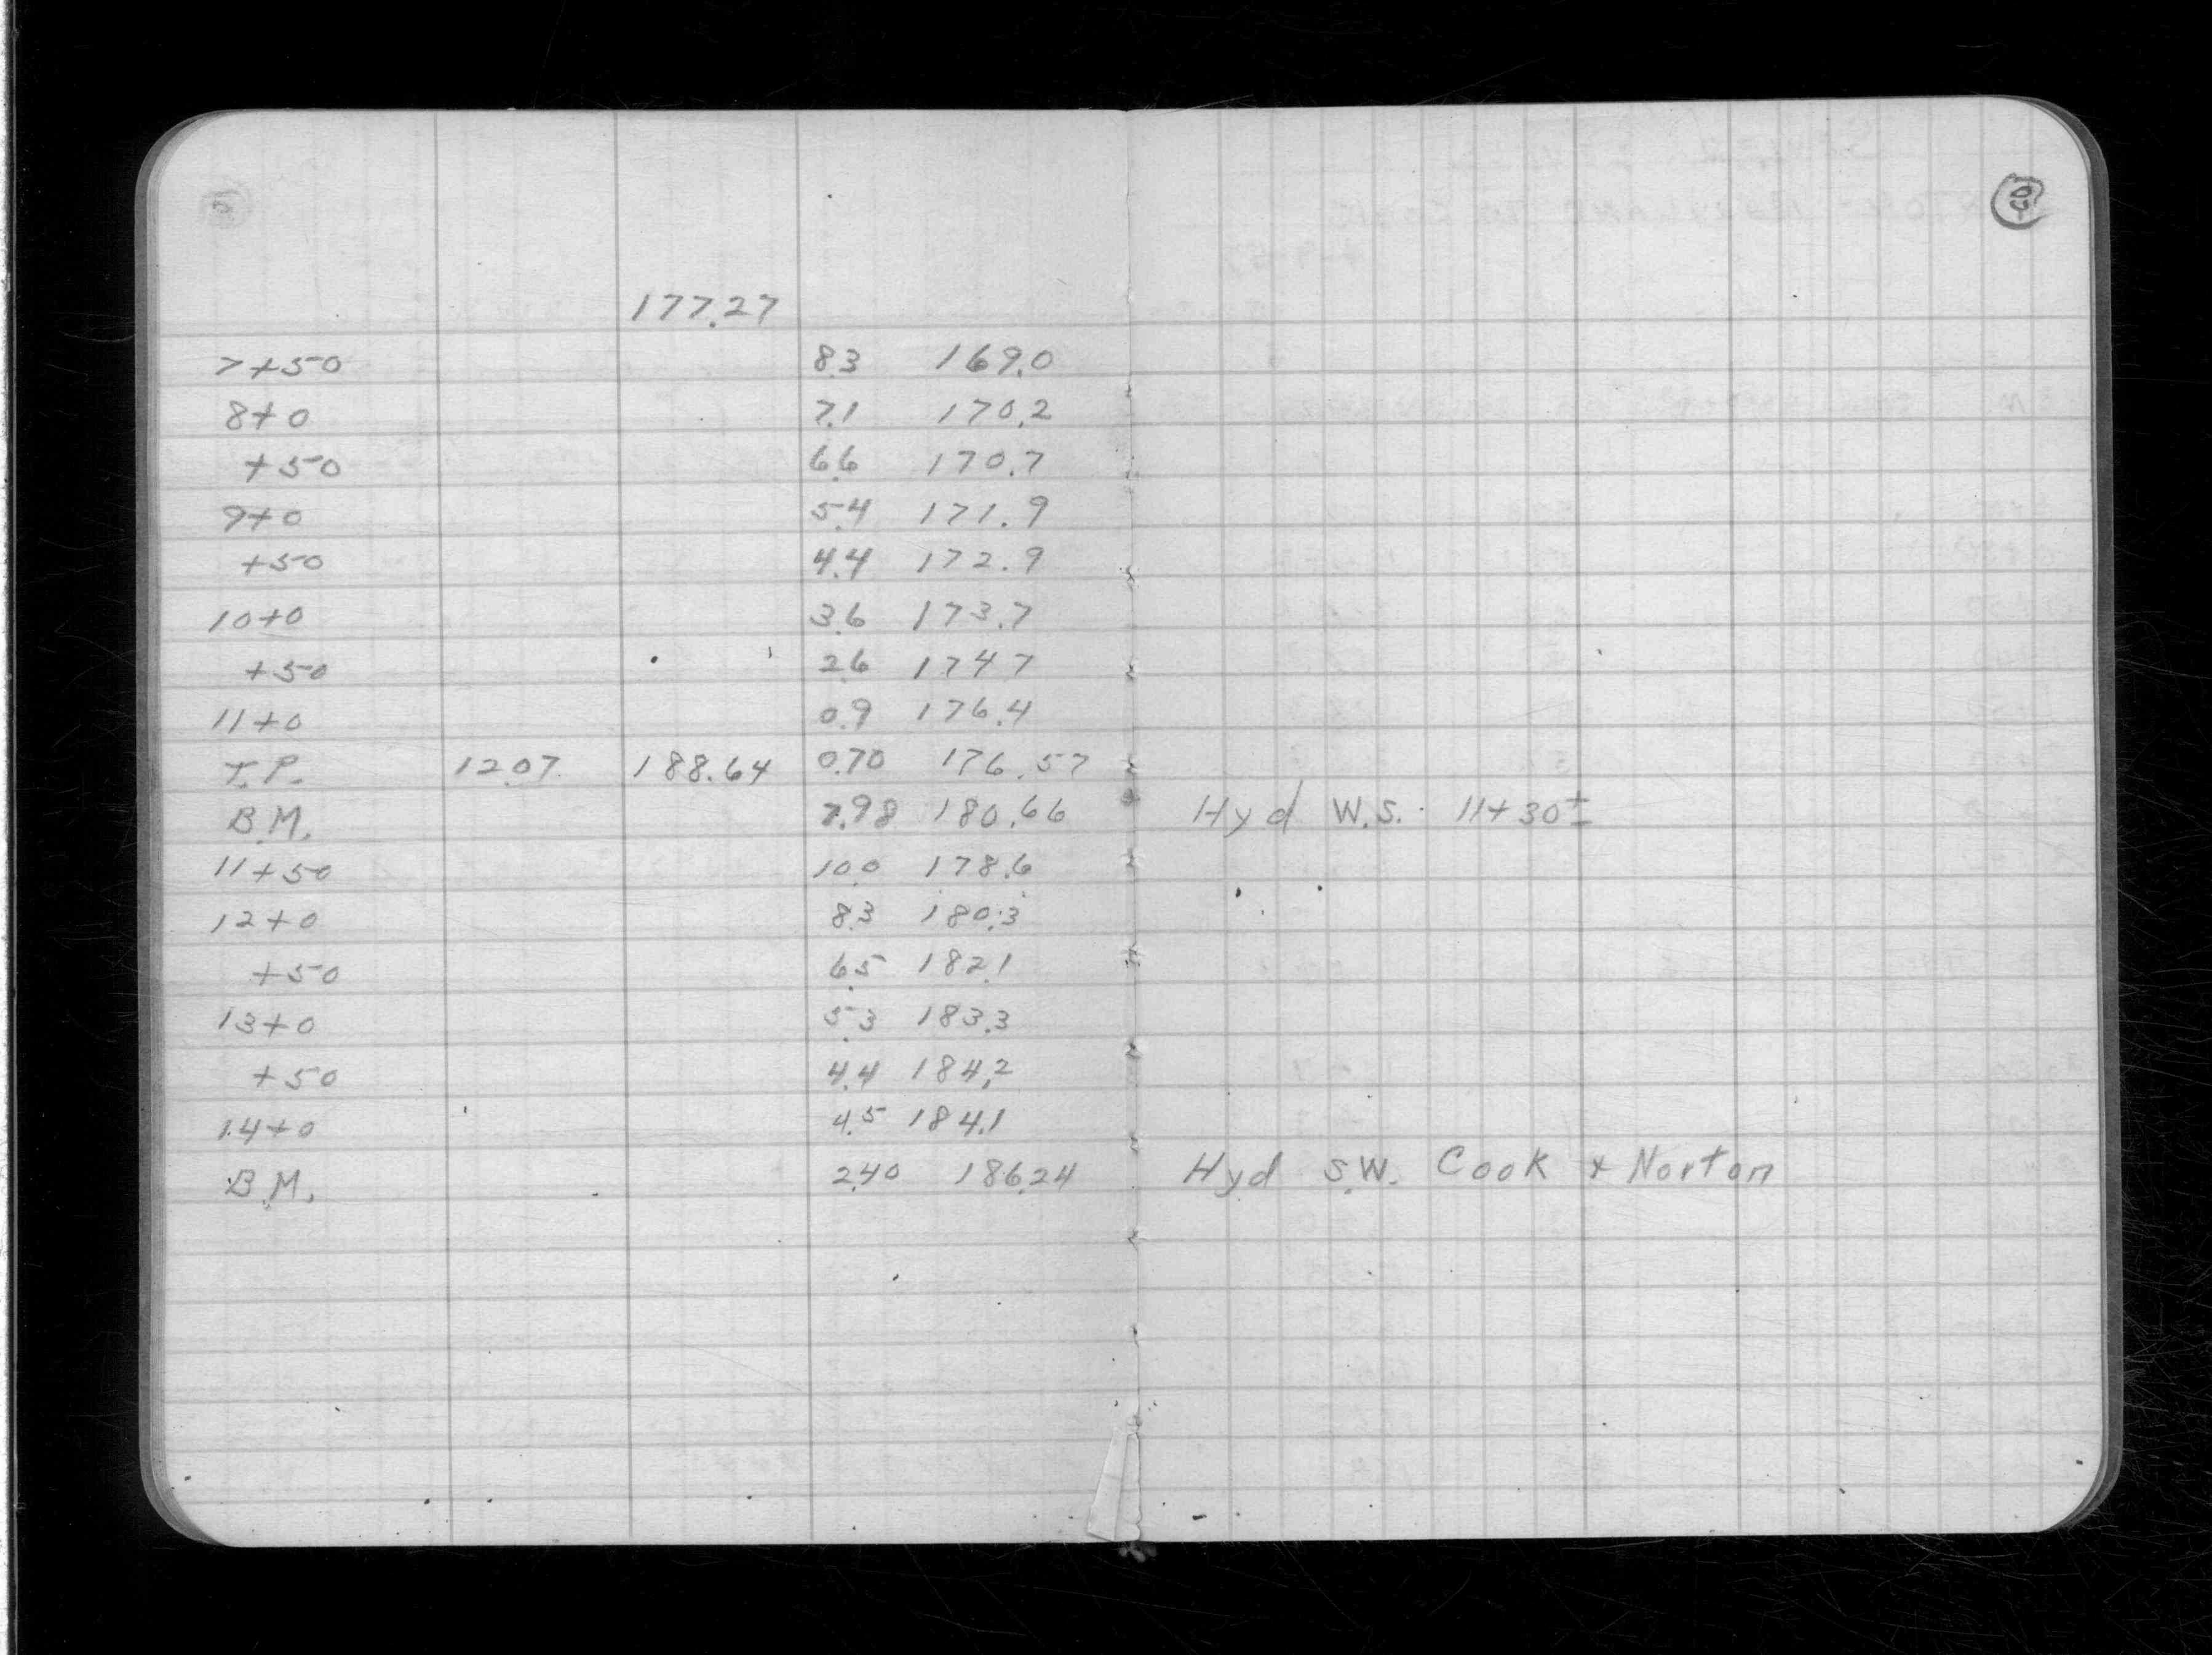 177.27
7+50 8.3 169.0
8+0 7.1 170.2
+50 6.6 170.7
9+0 5.4 171.9
+50 4.4 172.9
10+0 3.6 173.7
+50 2.6 174.7
11+0 0.9 176.4
T.P. 12.07 188.64 0.70 176.57
B.M. 7.98 180.66 Hyd W.S. 11+30±
11+50 10.0 178.6
12+0 8.3 180.3
+50 6.5 182.1
13+0 5.3 183.3
+50 4.4 184.2
14+0 4.5 184.1
B.M. 2.40 186.24 Hyd S.W. Cook & Norton